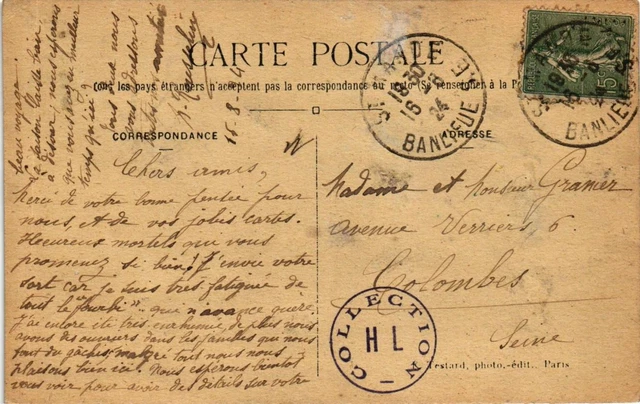 CARTE POSTALE
Tous les pays étrangers n'acceptent pas la correspondance au recto (Se renseigner à la P
CORRESPONDANCE
ADRESSE
Chers amis,
Merci de votre bonne pensée pour
nous, et de vos jolies cartes.
Heureux mortels que vous
promenez si bien! J'envie votre
sort car je suis très fatiguée de
tout le "fourbi" qui n'avance guère.
J'ai encore été très enrhumée, de plus nous
avons des ouvriers dans les familles qui nous
font du gâchis, malgré tout nous nous
plaisons bien ici. Nous espérons bientôt
vous voir pour avoir des détails sur votre
beau voyage.
à désirer, nous espérons
que vous aurez meilleur
temps qu'ici
16-8-24
Madame et Monsieur Granier
avenue Verriers 6
Colombes
Seine
BANLIEUE
BANLIEUE
COLLECTION
HL
Testard, photo.-édit. Paris